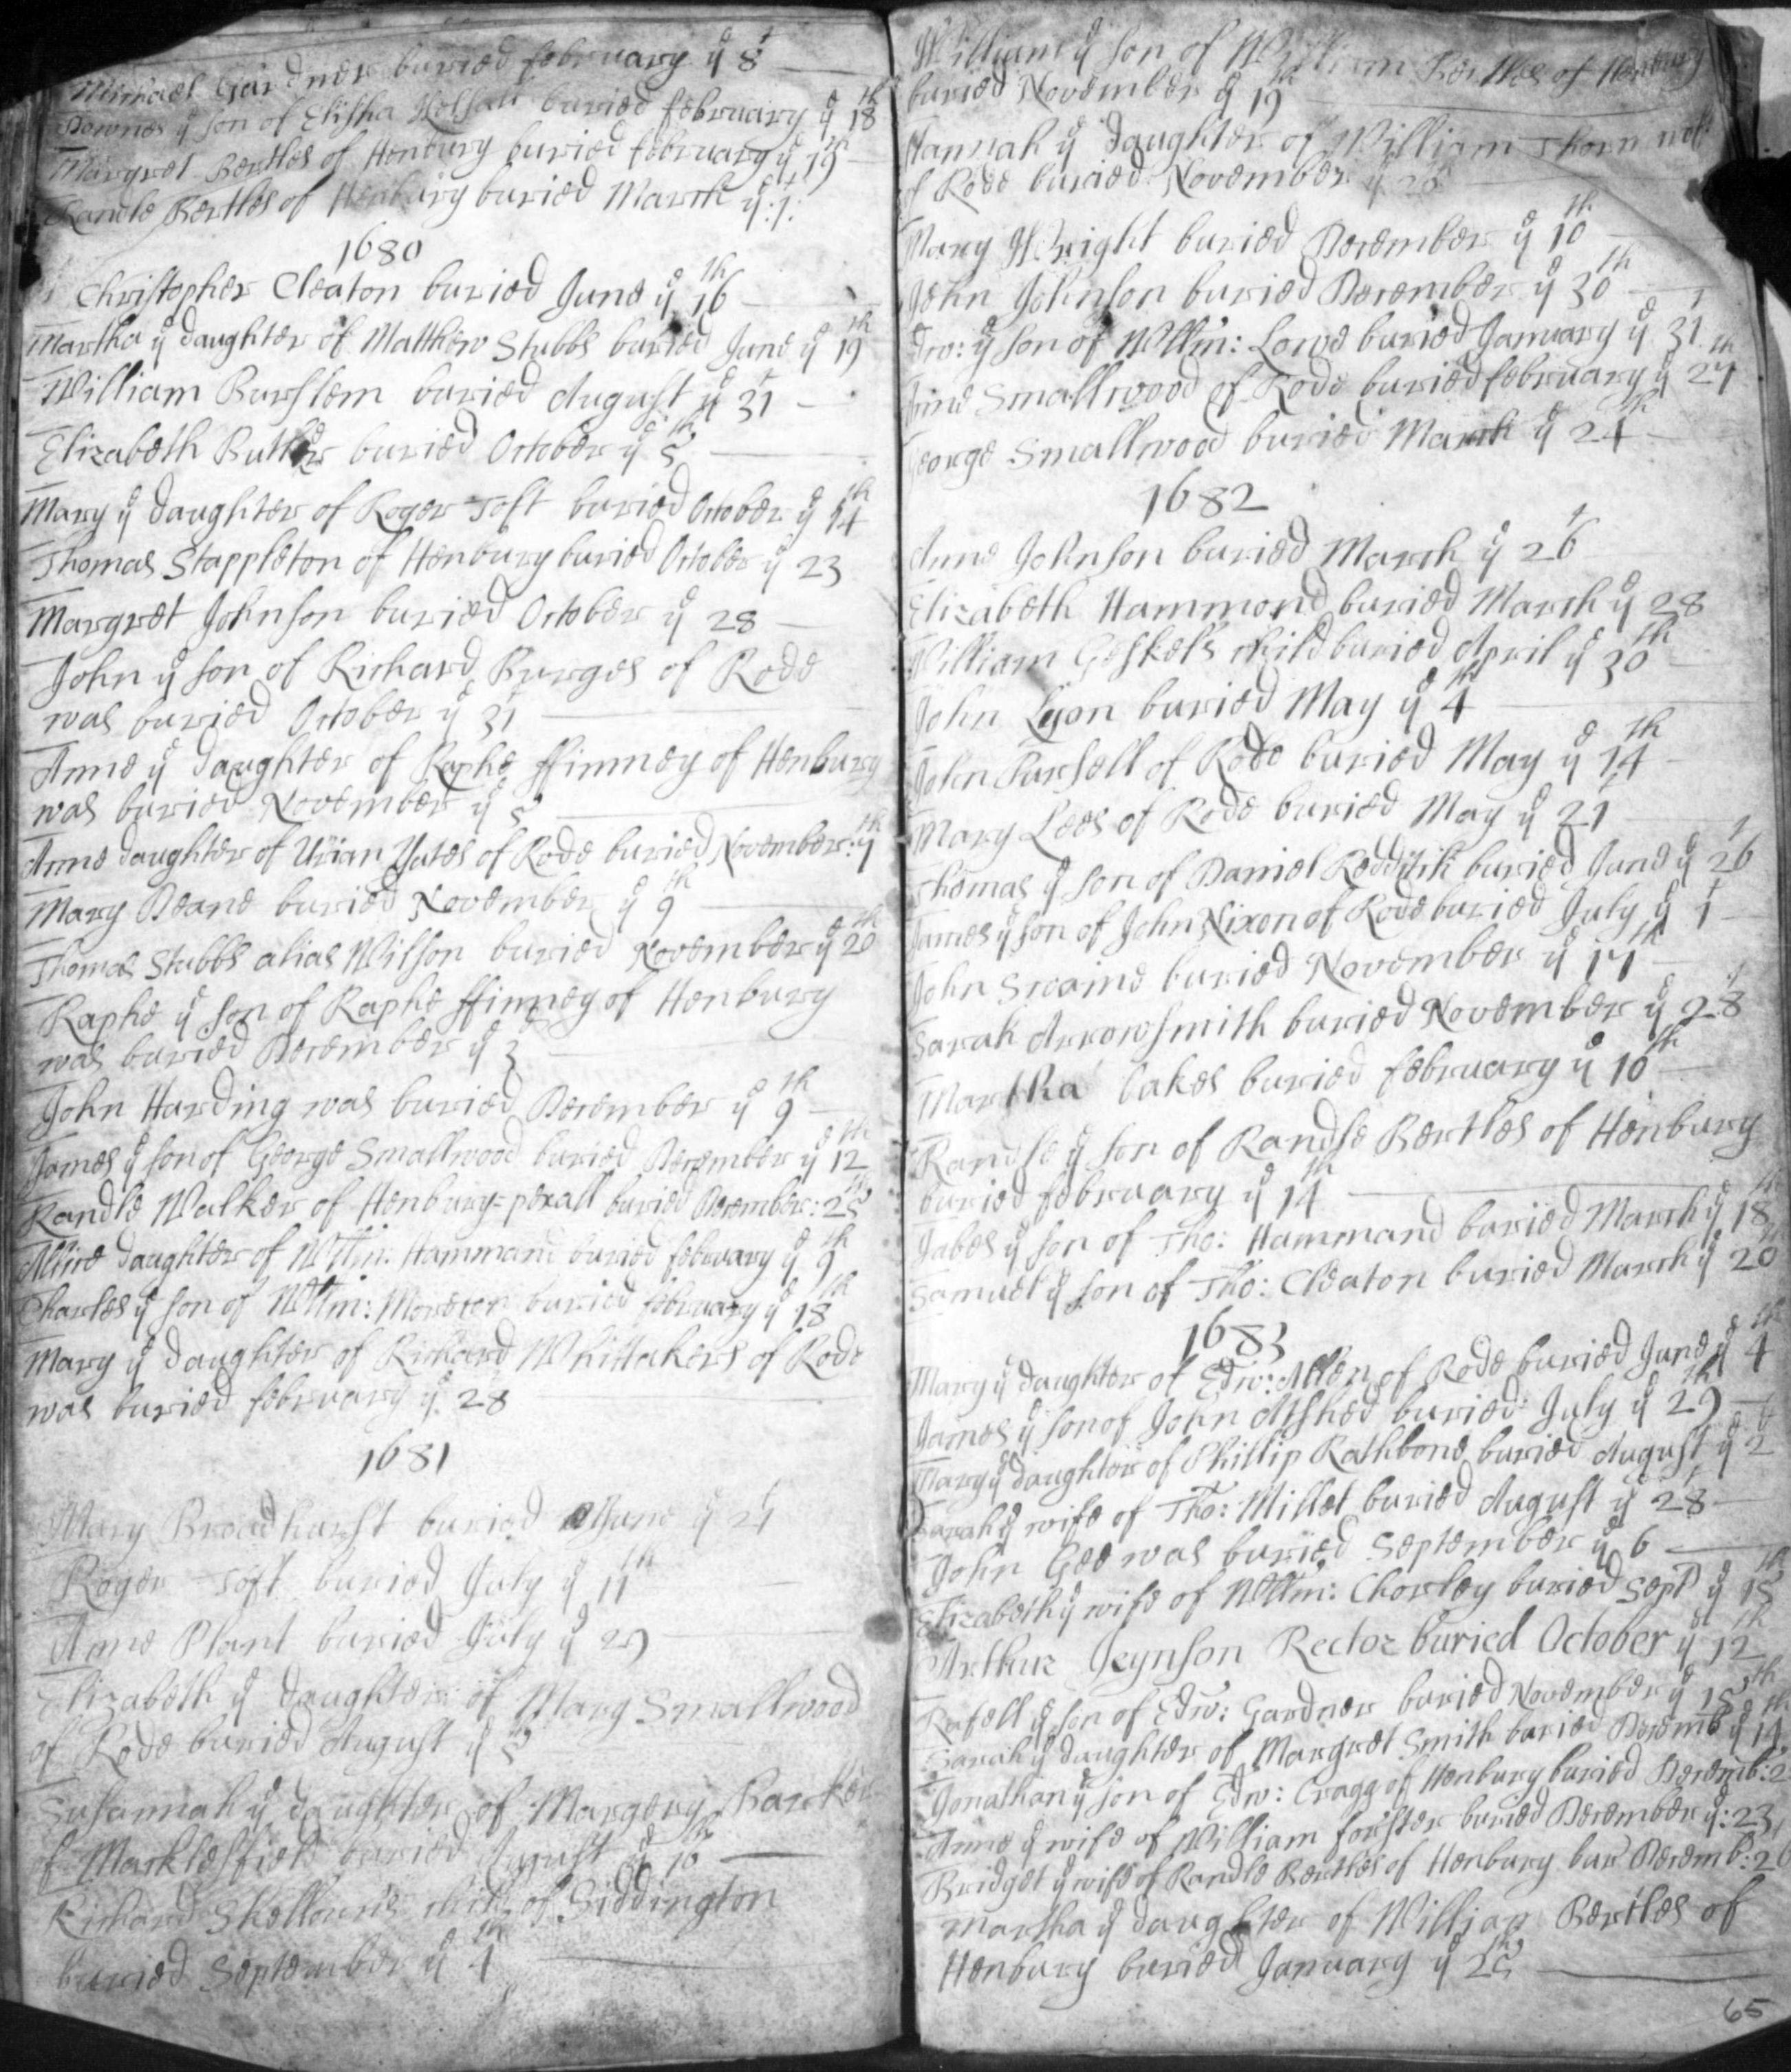 Michael Gardner buried february yᵉ 8ᵗ
Downes yᵉ son of Elisha buried february yᵉ 18ᵗʰ
Margret Bertles of Henbury buried february yᵉ 19ᵗʰ
Randle Bertles of Henbury buried March yᵉ :1:ᵗ
1680
Christopher Cleaton buried June yᵉ 16ᵗʰ
Martha yᵉ daughter of Matthew Stubbs buried June yᵉ 19ᵗʰ
William Burslem buried August yᵉ 31ᵗ
Elizabeth Butler buried October yᵉ 5ᵗʰ
Mary yᵉ daughter of Roger Toft buried October yᵉ 14ᵗʰ
Thomas Stappleton of Henbury buried October yᵉ 23
Margret Johnson buried October yᵉ 28
John yᵉ son of Richard Burges of Rode
was buried October yᵉ 31ᵗ
Anne yᵉ daughter of Raphe ffinney of Henbury
was buried November yᵉ 5
Anne daughter of Urian Yates of Rode buried November: 7ᵗʰ
Mary Deane buried November yᵉ 9ᵗʰ
Thomas Stubbs alias Wilson buried November yᵉ 20ᵗʰ
Raphe yᵉ son of Raphe ffinney of Henbury
was buried December yᵉ 3ᵈ
John Harding was buried December yᵉ 9ᵗʰ
James yᵉ son of George Smallwood buried December yᵉ 12ᵗʰ
Randle Walker of Henbury=pexall buried December: 25ᵗʰ
Allice daughter of Wllm: Hammand buried february yᵉ 9ᵗʰ
Charles yᵉ son of Wllm: Moreton buried february yᵉ 18ᵗʰ
Mary yᵉ daughter of Richard Whittakers of Rode
was buried february yᵉ 28
1681
Mary Broadhurst buried June yᵉ 21ᵗ
Roger Toft buried July yᵉ 11ᵗʰ
Anne Plant buried July yᵉ 29
Elizabeth yᵉ daughter of Mary Smallwood
of Rode buried August yᵉ 5
Susannah yᵉ daughter of Margery Barker
of Macklesfield buried August yᵉ 10ᵗʰ
Richard child of Siddington
buried September yᵉ 4ᵗʰ
William yᵉ son of William Bertles of Henbury
buried November yᵉ 19ᵗʰ
Hannah yᵉ daughter of William
of Rode buried November yᵉ
Mary Wright buried December yᵉ 10ᵗʰ
John Johnson buried December yᵉ 30ᵗʰ
Edw: yᵉ son of Wllm: Lowe buried January yᵉ 31ᵗ
Anne Smallwood of Rode buried february yᵉ 27ᵗʰ
George Smallwood buried March yᵉ 24ᵗʰ
1682
Anne Johnson buried March yᵉ 26ᵗ
Elizabeth Hammond buried March yᵉ 28
William Geskels child buried April yᵉ 30ᵗʰ
John Lyon buried May yᵉ 4ᵗʰ
John Pursell of Rode buried May yᵉ 14ᵗʰ
Mary Lees of Rode buried May yᵉ 21ᵗ
Thomas yᵉ son of Daniel Redditch buried June yᵉ 26ᵗ
James yᵉ son of John Nixon of Rode buried July yᵉ 1ᵗ
John Swaine buried November yᵉ 17ᵗʰ
Sarah Arrowsmith buried November yᵉ 28ᵗ
Martha Oakes buried february yᵉ 10ᵗʰ
Randle yᵉ son of Randle Bertles of Henbury
buried february yᵉ 14ᵗʰ
Jabes yᵉ son of Tho: Hammand buried March yᵉ 18ᵗʰ
Samuel yᵉ son of Tho: Cleaton buried March yᵉ 20ᵗʰ
1683
Mary yᵉ daughter of Edw: Allen of Rode buried June yᵉ 4ᵗʰ
James yᵉ son of John Alshed buried July yᵉ 29ᵗʰ
Mary yᵉ daughter of Phillip Rathbone buried August yᵉ 2ᵈ
Sarah yᵉ wife of Tho: Millet buried August yᵉ 28ᵗ
John Gee was buried September yᵉ 6
Elizabeth yᵉ wife of Wllm: Chorley buried Sept yᵉ 15ᵗʰ
Arthur Jeynson Rector buried October yᵉ 12ᵗʰ
Rafell yᵉ son of Edw: Gardner buried November yᵉ 15ᵗʰ
Sarah yᵉ daughter of Margret Smith buried Decemb yᵉ 14ᵗʰ
Jonathan yᵉ son of Edw: Cragg of Henbury buried Decemb: 2
Anne yᵉ wife of William forster buried December yᵉ: 23
Bridget yᵉ wife of Randle Bertles of Henbury bur Decemb: 26
Martha yᵉ daughter of William Bertles of
Henbury buried January yᵉ 25ᵗʰ
65